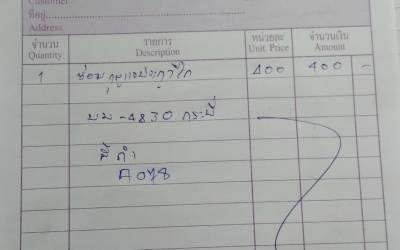 Customer
ที่อยู่
Address
จำนวน รายการ หน่วยละ จำนวนเงิน
Quantity Description Unit Price Amount
1 ซ่อมกุญแจประตู 400 400 -
บม-4830 กระบี่
สีดำ
A078